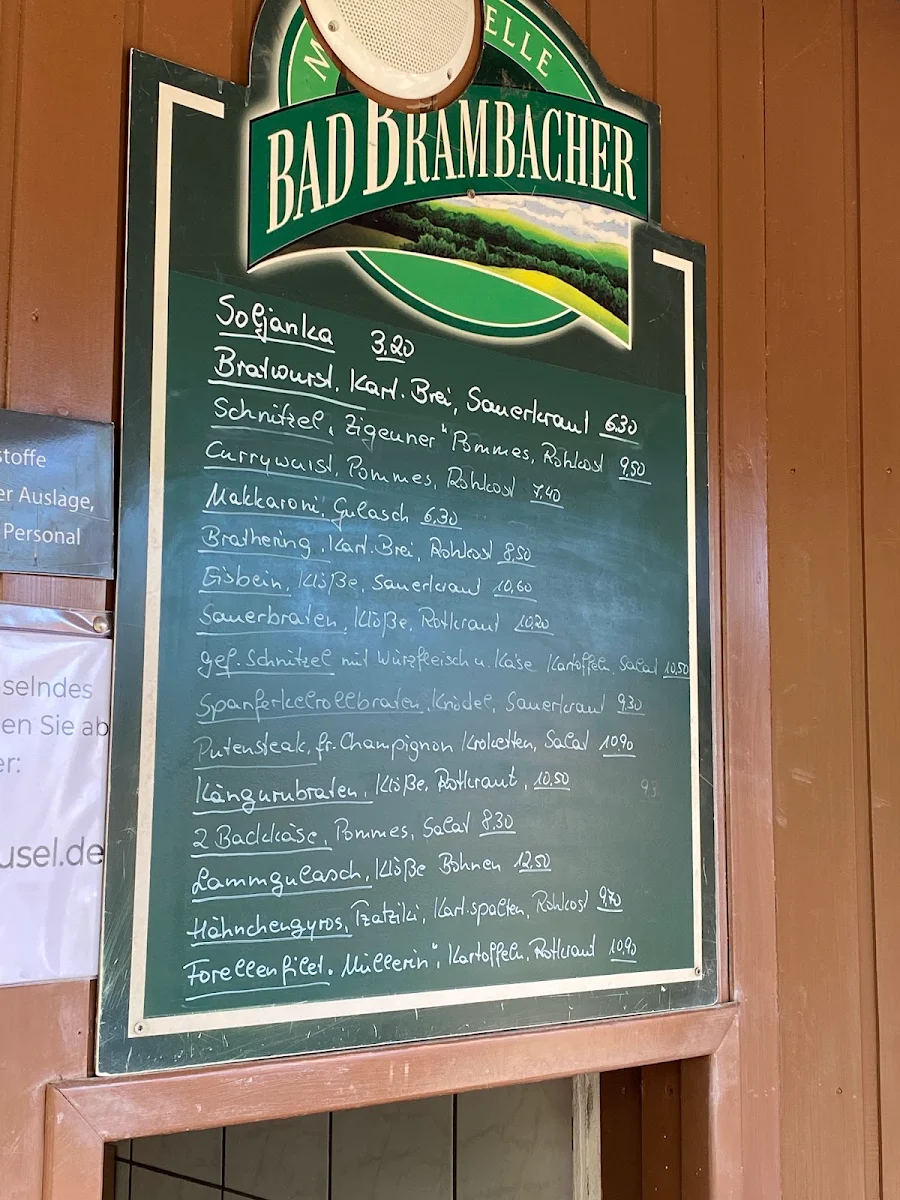 M ELLE
BAD BRAMBACHER
Soljanka 3.20
Bratwurst, Kart. Brei, Sauerkraut 6.30
Schnitzel, Zigeuner" Pommes, Rohkost 9,50
Currywurst, Pommes, Rohkost 7.40
Makkaroni, Gulasch 6,30
Brathering, Kart. Brei, Rohkost 8,50
Eisbein, Klöße, Sauerkraut 10,60
Sauerbraten, Klöße, Rotkraut 10,20
gef. Schnitzel mit Würzfleisch u. Käse Kartoffeln, Salat 10,50
Spanferkelrollbraten, Knödel, Sauerkraut 9,30
Putensteak, fr. Champignon Kroketten, Salat 10,90
Kängurubraten, Klöße, Rotkraut, 10,50
93
2 Backkäse, Pommes, Salat 8.30
Lammgulasch, Klöße Bohnen 12,50
Hähnchengyros, Tzatziki, Kart.spalten, Rohkost 9,70
Forellenfilet. Müllerin", Kartoffeln, Rotkraut 10,90
stoffe
er Auslage,
Personal
selndes
en Sie ab
er:
usel.de